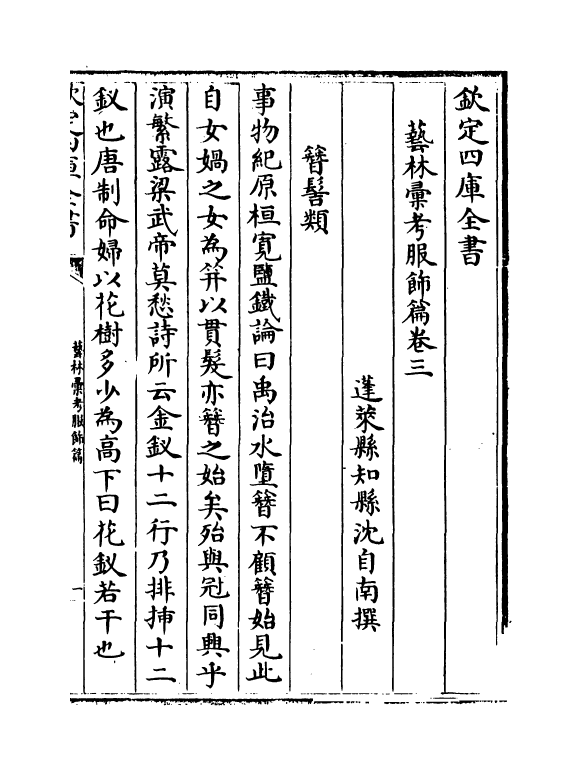 欽定四庫全書
藝林彚考服飾篇卷三
蓬萊縣知縣沈自南撰
簪髻類
事物紀原桓寛鹽鐵論曰禹治水墮簪不顧簪始見此
自女媧之女為笄以貫髮亦簪之始矣殆與冠同興乎
演繁露梁武帝莫愁詩所云金釵十二行乃排揷十二
釵也唐制命婦以花樹多少為高下曰花釵若干也
欽定四庫全書
藝林彚考服飾篇
一